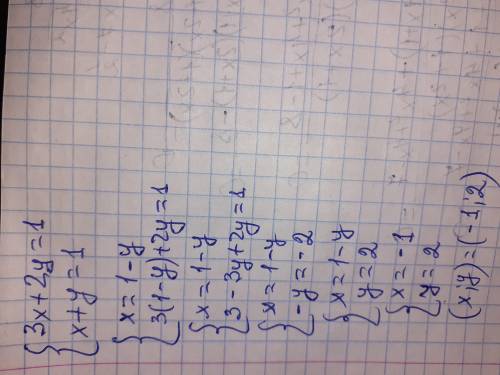 {3x+2y=1
x+y=1
{x=1-y
3(1-y)+2y=1
{x=1-y
3-3y+2y=1
{x=1-y
-y=-2
{x=1-y
y=2
{x=-1
y=2
(x;y)=(-1;2)